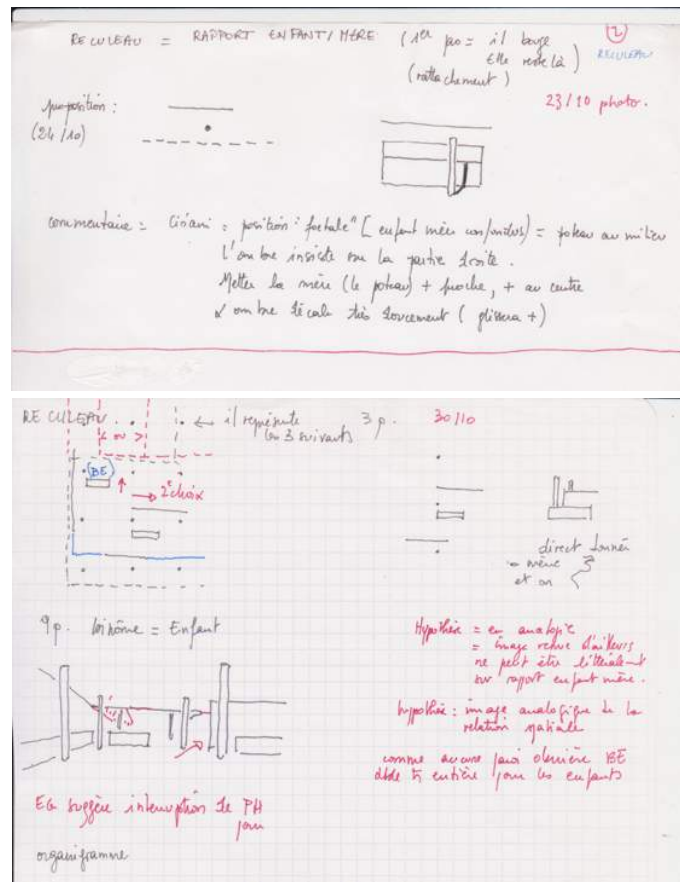 RECULEAU = RAPPORT ENFANT/MÈRE (1er pas = il bouge
Elle reste là)
(rattachement)
2
RECULEAU
23/10 photo.
proposition :
(24/10)
commentaire = = position "foetale" [enfant mère confondus) = poteau au milieu
L'ombre insiste sur la partie droite.
Mettre la mère (le poteau) + proche, + au centre
L'ombre décale très doucement ( glissera +)
RECULEAU
< ou >
← il représente
les 3 suivants
3 p.
30/10
BE
→ 2e choix
direct donnée
mère
et on
9 p. binôme = Enfant
Hypothèse = en analogie
= image venue d'ailleurs
ne peut être littéralement
sur rapport enfant mère.
hypothèse : image analogique de la
relation spatiale
comme aucune paroi derrière BE
entière pour les enfants
EG suggère interruption de PH
pour
organigramme